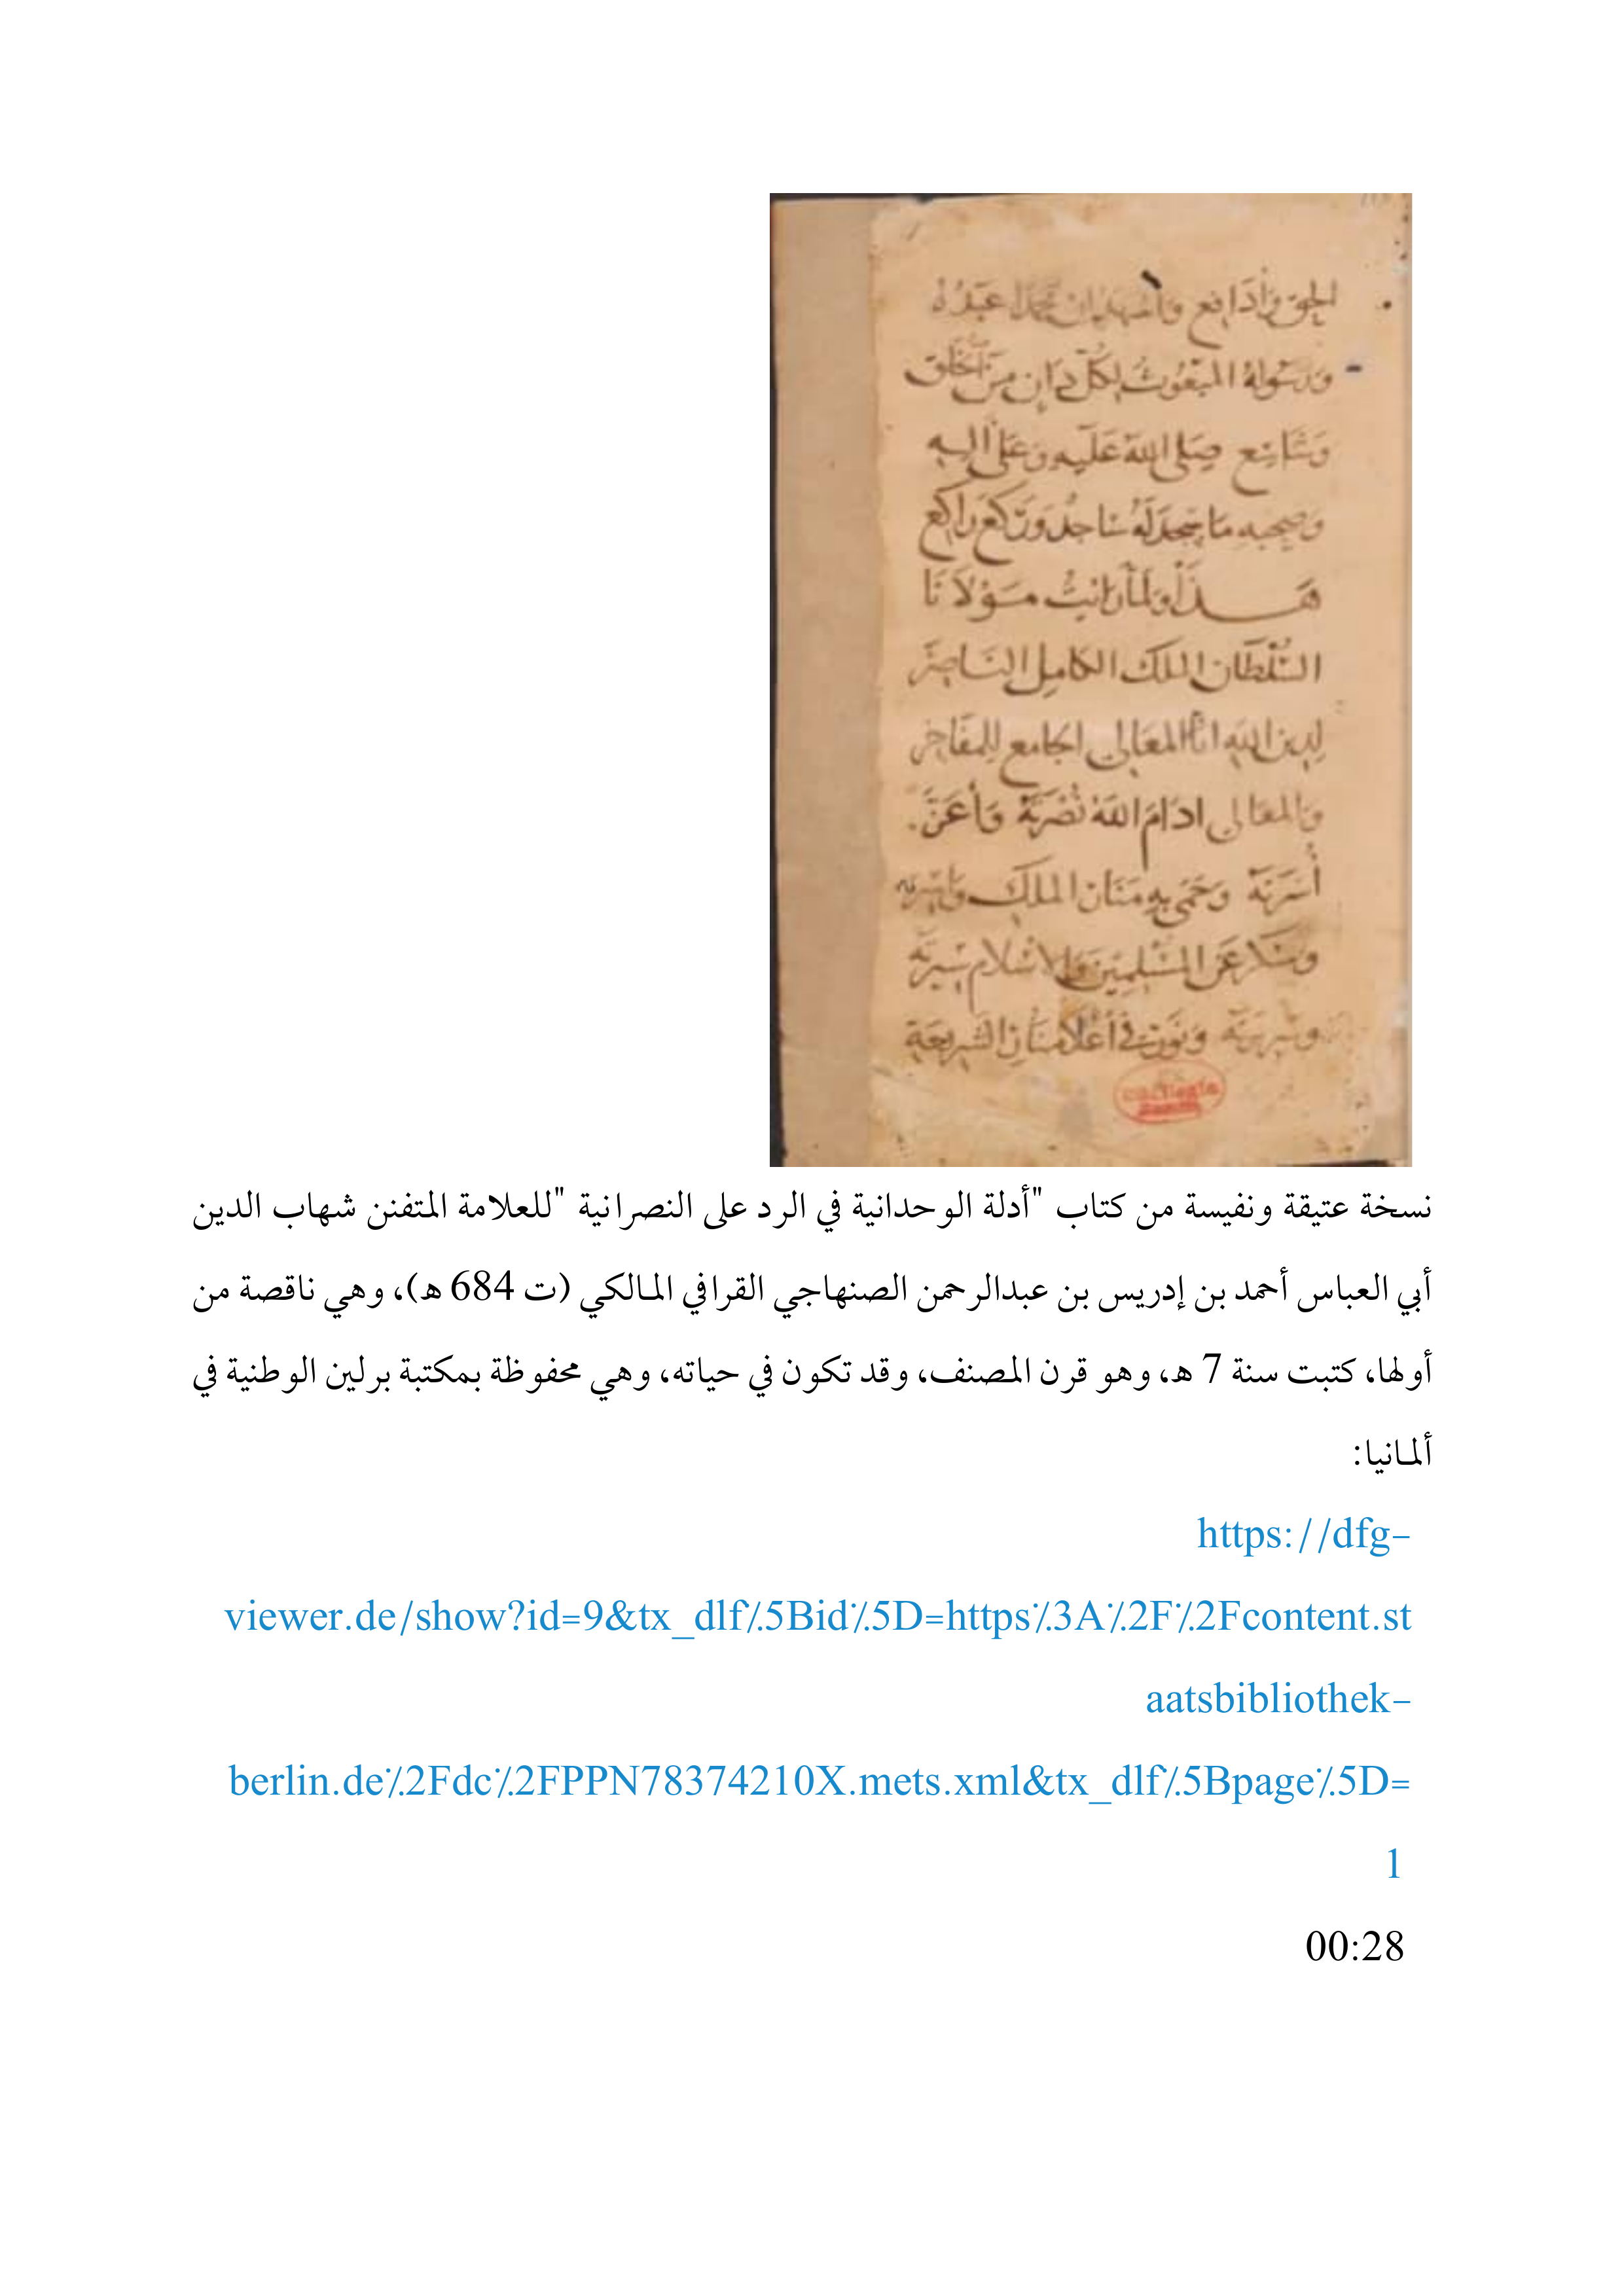 الحق وأدافع وأشهد ان محمدا عبده
ورسوله المبعوث لكل دان من الخلق
وشاسع صلى الله عليه وعلى اله
وصحبه ما سجد له ساجد وركع راكع
هذا ولما رايت مولانا
السلطان الملك الكامل الناصر
لدين الله ابا المعالي الجامع للمفاخر
والمعالى ادام الله نصرته وأعز
أسرته وحمى به منار الملك
عن المسلمين والاسلام
وسريرته في أعلا منار الشريعة
نسخة عتيقة ونفيسة من كتاب "أدلة الوحدانية في الرد على النصرانية "للعلامة المتفنن شهاب الدين
أبي العباس أحمد بن إدريس بن عبدالرحمن الصنهاجي القرافي المالكي (ت 684 هـ)، وهي ناقصة من
أولها، كتبت سنة 7 هـ، وهو قرن المصنف، وقد تكون في حياته، وهي محفوظة بمكتبة برلين الوطنية في
ألمانيا:
https://dfg-
viewer.de/show?id=9&tx_dlf%5Bid%5D=https%3A%2F%2Fcontent.st
aatsbibliothek-
berlin.de%2Fdc%2FPPN78374210X.mets.xml&tx_dlf%5Bpage%5D=
1
00:28